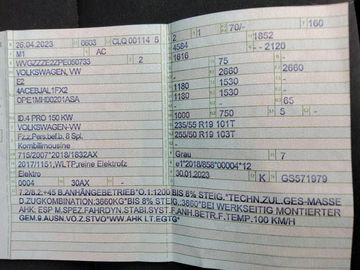 26.04.2023 0603 CLQ00114 6
M1 AC
WVGZZZE2ZPE050733 2
VOLKSWAGEN, VW
E2
4ACEBJAL1FX2
OPE1MH00201ASA
ID.4 PRO 150 KW
VOLKSWAGEN-VW
Fz.z.Pers.bef.b. 8 Spl.
Kombilimousine
715/2007*2018/1832AX
2017/1151;WLTP;reine Elektrofz
Elektro
0004 30AX -
2 1 70/- 160
4584 1852
1616 - 2120
- 75 -
2660 - 2660
1180 1530 -
1180 1530 -
- - 65
1000 750 5 -
235/55 R19 101T
255/50 R19 103T
-
Grau 7
e1*2018/858*00004*12
30.01.2023 K GS571979
7.2/8.2:+45 B.ANHÄNGEBETRIEB*O.1:1200 BIS 8% STEIG.*TECHN.ZUL.GES-MASSE
D.ZUGKOMBINATION:3860KG*BIS 8% STEIG.:3860*BEI WERKSEITIG MONTIERTER
AHK: ESP M.SPEZ.FAHRDYN.STABI.SYST.F.ANH.BETR.F.TEMP.100 KM/H
GEM.9.AUSN.VO.Z.STVO*WW.AHK LT.EGTG*